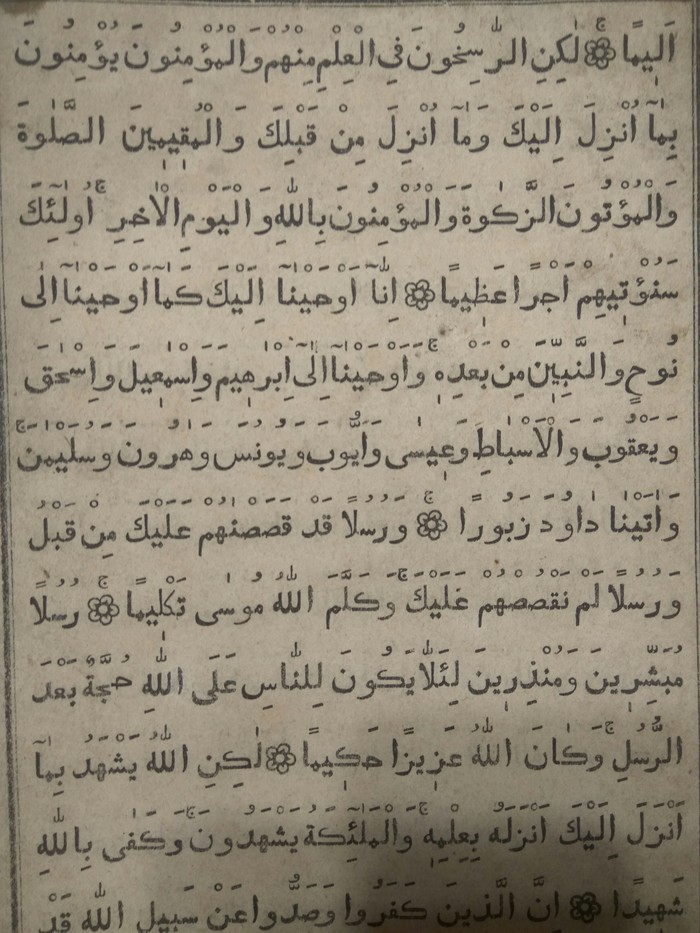 اَلِيمًا ۝ لٰكِنِ الرّٰسِخُونَ فِي الْعِلْمِ مِنْهُمْ وَالْمُؤْمِنُونَ يُؤْمِنُونَ
بِمَآ اُنْزِلَ اِلَيْكَ وَمَآ اُنْزِلَ مِنْ قَبْلِكَ وَالْمُقِيمِينَ الصَّلٰوةَ
وَالْمُؤْتُونَ الزَّكٰوةَ وَالْمُؤْمِنُونَ بِاللّٰهِ وَالْيَوْمِ الْاٰخِرِ ۚ اُولٰٓئِكَ
سَنُؤْتِيهِمْ اَجْرًا عَظِيمًا ۝ اِنَّآ اَوْحَيْنَآ اِلَيْكَ كَمَآ اَوْحَيْنَآ اِلٰى
نُوحٍ وَالنَّبِيّٖنَ مِنْ بَعْدِهٖ ۚ وَاَوْحَيْنَآ اِلٰٓى اِبْرٰهِيمَ وَاِسْمٰعِيلَ وَاِسْحٰقَ
وَيَعْقُوبَ وَالْاَسْبَاطِ وَعِيسٰى وَاَيُّوبَ وَيُونُسَ وَهٰرُونَ وَسُلَيْمٰنَ ۚ
وَاٰتَيْنَا دَاوٗدَ زَبُورًا ۚ ۝ وَرُسُلًا قَدْ قَصَصْنٰهُمْ عَلَيْكَ مِنْ قَبْلُ
وَرُسُلًا لَمْ نَقْصُصْهُمْ عَلَيْكَ ۚ وَكَلَّمَ اللّٰهُ مُوسٰى تَكْلِيمًا ۚ ۝ رُسُلًا
مُبَشِّرِينَ وَمُنْذِرِينَ لِئَلَّا يَكُونَ لِلنَّاسِ عَلَى اللّٰهِ حُجَّةٌ بَعْدَ
الرُّسُلِ ۚ وَكَانَ اللّٰهُ عَزِيزًا حَكِيمًا ۝ لٰكِنِ اللّٰهُ يَشْهَدُ بِمَآ
اَنْزَلَ اِلَيْكَ اَنْزَلَهٗ بِعِلْمِهٖ ۚ وَالْمَلٰٓئِكَةُ يَشْهَدُونَ ۚ وَكَفٰى بِاللّٰهِ
شَهِيدًا ۝ اِنَّ الَّذِينَ كَفَرُوا وَصَدُّوا عَنْ سَبِيلِ اللّٰهِ قَدْ